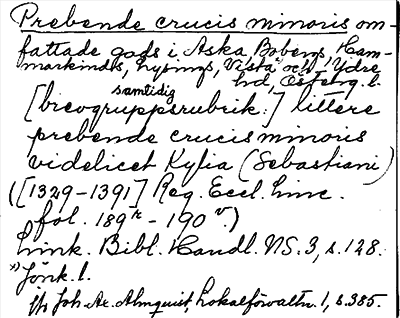 Prebende crucis minoris om-
fattade gods i Aska, Bobergs, Ham-
markinds, Lysings, Vista x) och Ydre
hd, Östergötl.
samtidig
[brevgruppsrubrik:] littere
prebende crucis minoris
videlicet Kylia (Sebastiani)
([1329-1391] Reg. Eccl. Linc.
fol. 189r - 190v)
Link. Bibl. Handl. NS. 3, s. 128.
x) Jönk. l.
Jfr Joh. Ax. Almquist, Lokalförvaltn. 1, s. 385.